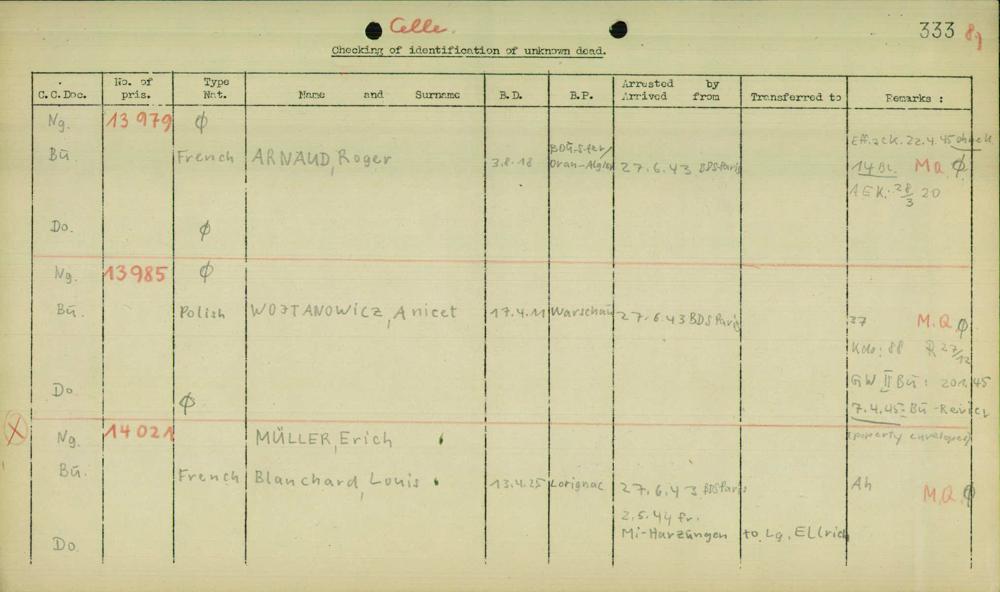 Celle.
333 89
Checking of identification of unknown dead.
C.C.Doc. No. of pris. Type Nat. Name and Surname B.D. B.P. Arrested by Arrived from Transferred to Remarks :
Ng. 13 979 ϕ
Eff.zck. 22.4.45
Bu. French ARNAUD, Roger 3.8.18 Oran-Algier 27.6.43 BDS Paris 14 Bl. M.Q. ϕ
AEK: 28/3 20
Do. ϕ
Ng. 13985 ϕ
Bu. Polish WOJTANOWICZ, Anicet 17.4.11 Warschau 27.6.43 BDS Paris 37 M.Q. ϕ
Kdo: 88 R 27/12
GW II Bu: 20.1.45
Do. ϕ
7.4.45: Bu-Revier
X Ng. 14021 MÜLLER, Erich (property envelopes)
Bu. French Blanchard, Louis 13.4.25 Lorignac 27.6.43 BDS Paris Ah M.Q. ϕ
2.5.44 fr.
Do. Mi-Harzungen to Lg. Ellrich